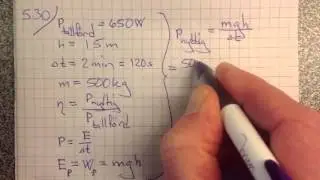 5.30/
P tillförd = 650W
h = 15 m
Δt = 2 min = 120s
m = 500 kg
η = P nyttig / P tillförd
P = E / Δt
E p = W p = mgh
P nyttig = mgh / Δt
= 50